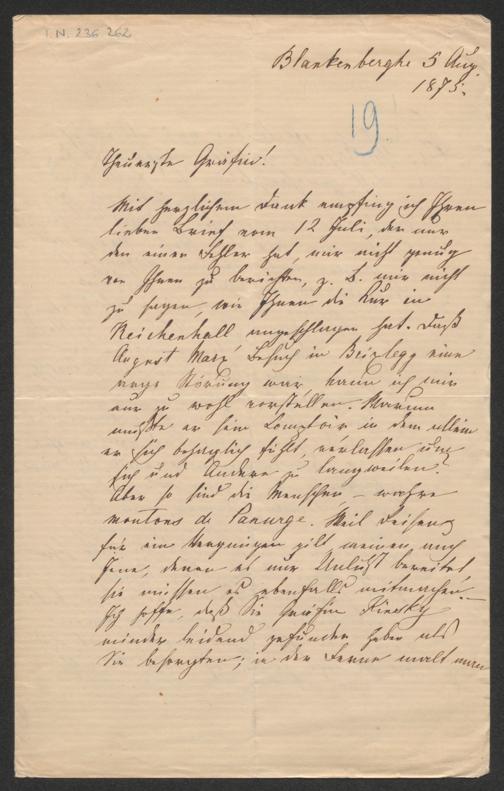 I. N. 236 262
Blankenberghe 5 Aug.
1875.
19.
Theuerste Gräfin!
Mit herzlichem Dank empfing ich Ihren
lieben Brief vom 12 Juli, der nur
den einen Fehler hat, mir nicht genug
von Ihnen zu berichten, z. B. mir nicht
zu sagen, wie Ihnen die Kur in
Reichenhall angeschlagen hat. Daß
August Besuch in Brixlegg eine
arge Störung war, kann ich mir
nur zu wohl vorstellen. Warum
mußte er sein Comptoir in dem allein
er sich behaglich fühlt, verlassen um
sich und Andere zu langweilen?
Aber so sind die Menschen – wahre
moutons de Panurge. Weil Reisen
für ein Vergnügen gilt meinen auch
Jene, denen es nur Unlust bereitet
sie müssen es ebenfalls mitmachen. –
Ich hoffe, daß Sie Gräfin Kinsky
minder leidend gefunden haben als
Sie besorgten; in der Ferne malt man